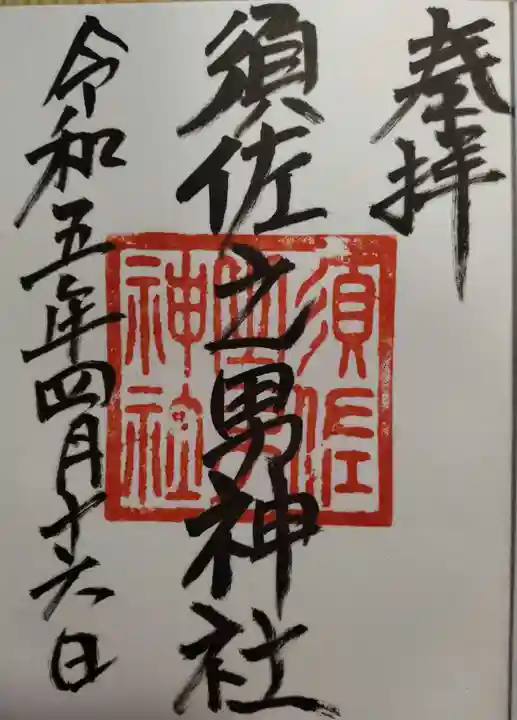 奉拝
須佐之男神社
令和五年四月十六日
須佐
神社